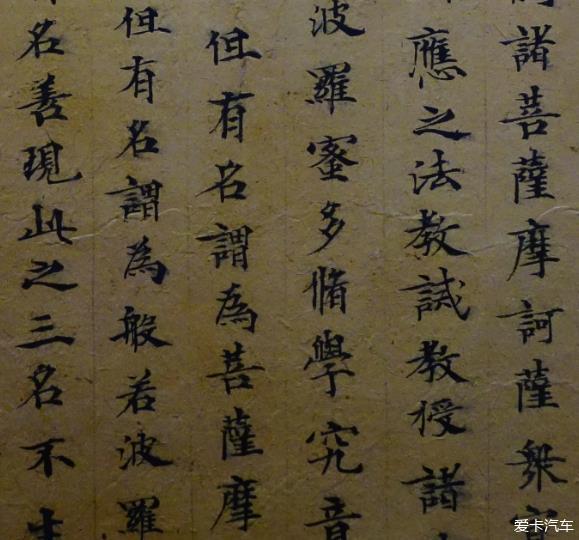 諸菩薩摩訶薩衆宣
應之法教誡教授諸
波羅蜜多脩學究竟
但有名謂為菩薩摩
但有名謂為般若波羅
名善現此之三名不生
爱卡汽车